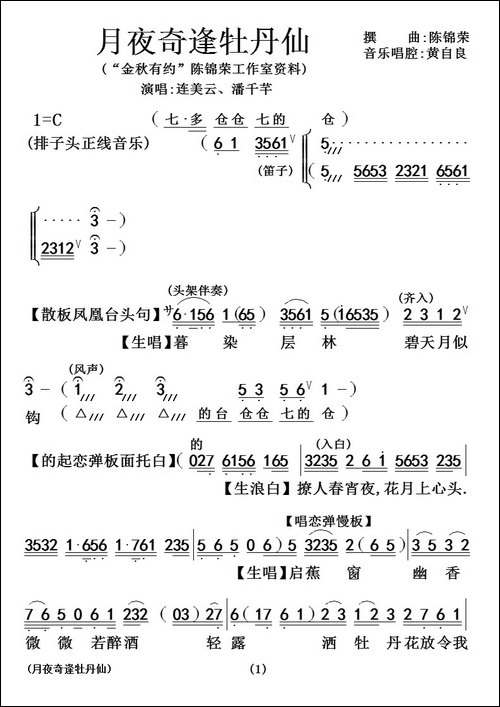 月夜奇逢牡丹仙
(“金秋有约”陈锦荣工作室资料)
演唱:连美云、潘千芊
撰 曲:陈锦荣
音乐唱腔:黄自良
1=C ( 七·多 仓仓 七的 仓)
(排子头正线音乐) ( 6 1 3561 V 5 ··················
(笛子) ( 5 5653 2321 6561
····· 3 -)
2312 V 3 -)
(头架伴奏) (齐入)
【散板凤凰台头句】 サ 6·156 1 (65) 3561 5 (16535) 2 3 1 2 V
【生唱】暮 染 层 林 碧天月似
(风声)
3 - ( 1 2 3 5 3 5 6 V 1 -)
钩 ( △ △ △ 的台 仓仓 七的 仓 )
的 (入白)
【的起恋弹板面托白】( 027 6156 165 3235 2 6 1 5653 235
【生浪白】撩人春宵夜,花月上心头.
【唱恋弹慢板】
3532 1·656 1·761 235 5 6 5 0 6 0) 5 3235 2 ( 6 5 ) 3 5 3 2
【生唱】启蕉 窗 幽 香
7 6 5 0 6 1 232 (03) 27 6 (17 6 1) 2 3 1 2 3 2 7 6 1
微 微 若醉酒 轻 露 洒 牡 丹花放令我
(月夜奇逢牡丹仙) (1)